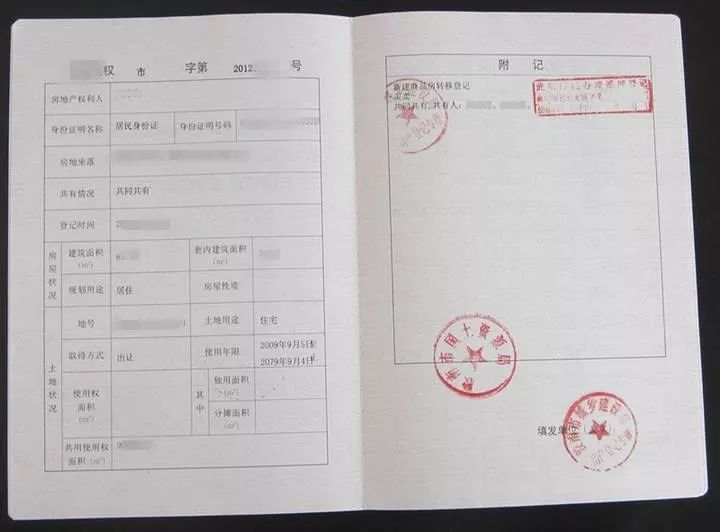 权 市 字第 2012 号
房地产权利人
身份证明名称 居民身份证 身份证明号码
房地坐落
共有情况 共同共有
登记时间 20
房屋状况 建筑面积(m²) 8 套内建筑面积(m²) 7
规划用途 居住 房屋性质
土地状况 地号 土地用途 住宅
取得方式 出让 使用年限 2009年9月5日至
2079年9月4日止
使用权面积(m²) 其中 独用面积(m²)
分摊面积(m²)
共用使用权面积(m²) 9
附 记
新建商品房转移登记
买卖
共同共有,共有人:
胶南市国土资源局
填发单位(
胶南市城乡建设